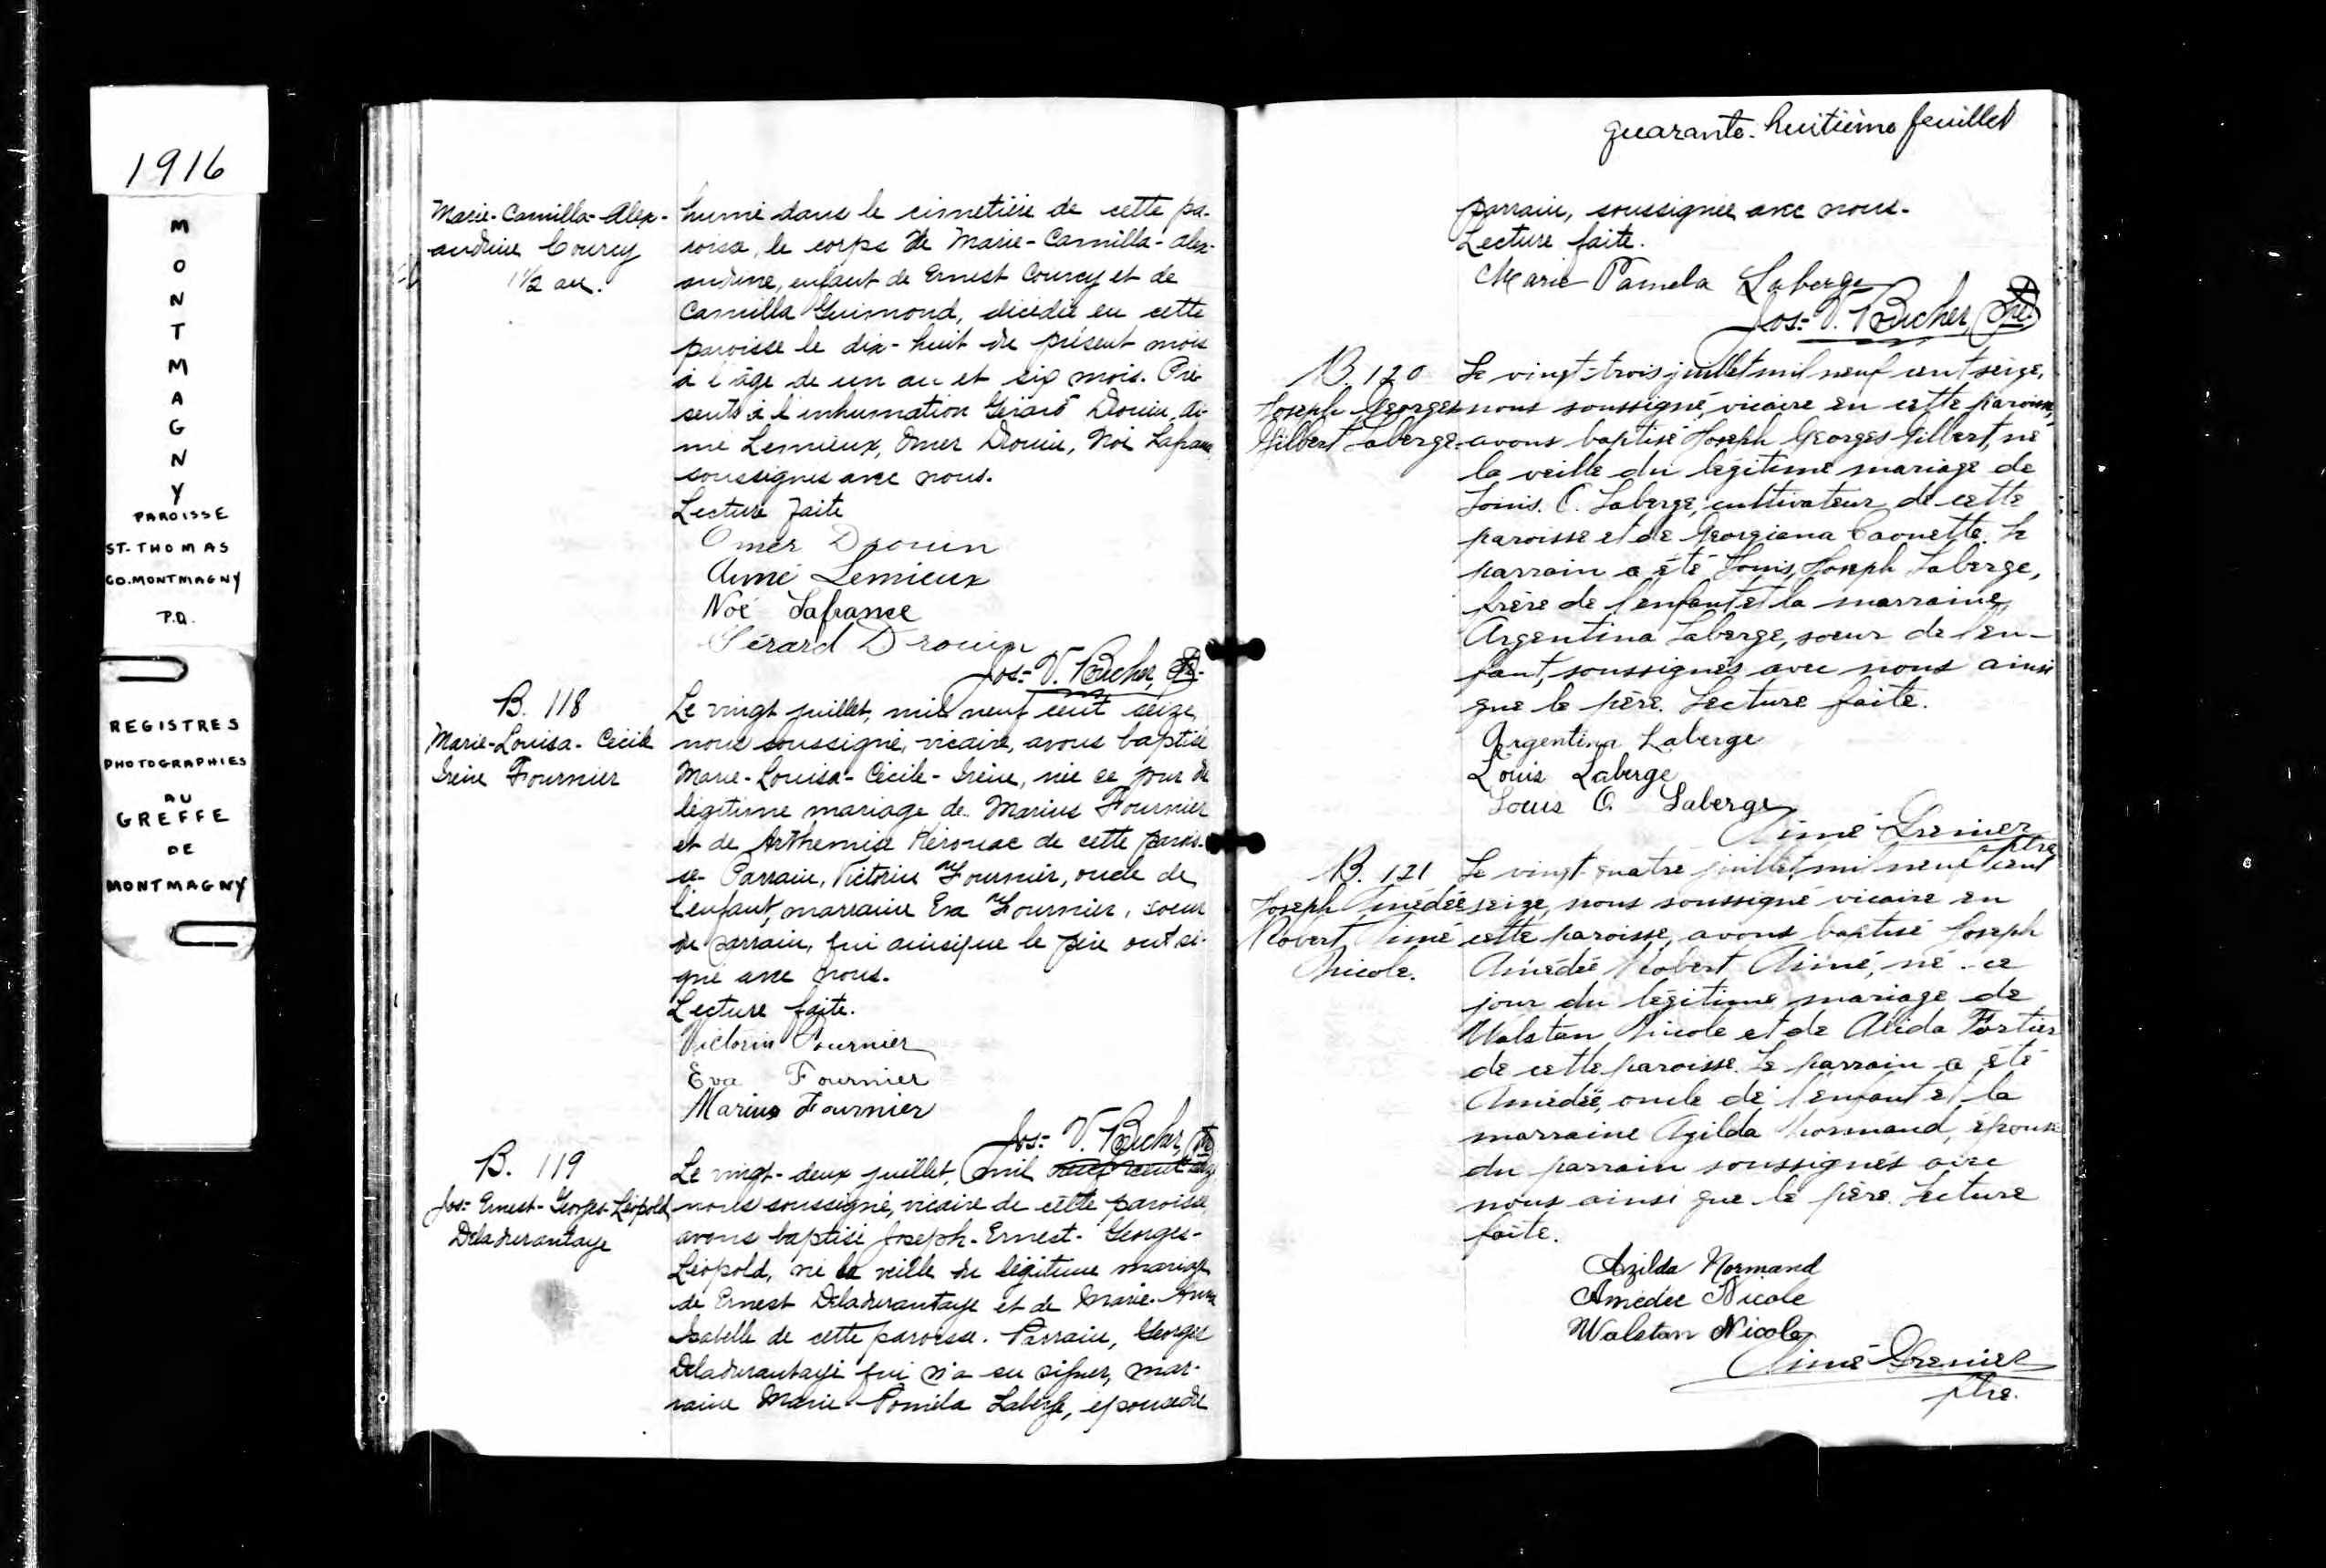 1916
MONTMAGNY
PAROISSE
ST-THOMAS
CO. MONTMAGNY
P.Q.
REGISTRES
PHOTOGRAPHIES
AU
GREFFE
DE
MONTMAGNY
Marie-Camilla-Alex-
andrine Courcy
1 1/2 an.
humé dans le cimetière de cette pa-
roisse, le corps de Marie-Camilla-Alex-
andrine, enfant de Ernest Courcy et de
Camilla Guimond, décédée en cette
paroisse le dix-huit du présent mois
à l'âge de un an et six mois. Pré-
sents à l'inhumation Gérard Drouin, Ai-
mé Lemieux, Omer Drouin, Noé Lafrance
soussignés avec nous.
Lecture faite
Omer Drouin
Aimé Lemieux
Noé Lafrance
Gérard Drouin
Jos: V. Bucher, Ptr.
B. 118
Marie-Louisa-Cécile
Irène Fournier
Le vingt juillet, mil neuf cent seize,
nous soussigné, vicaire, avons baptisé
Marie-Louisa-Cécile-Irène, née ce jour du
légitime mariage de Marius Fournier
et de Arthemise Kérouac de cette parois-
se. Parrain, Victorin Fournier, oncle de
l'enfant, marraine Eva Fournier, soeur
du parrain, qui ainsi que le père ont si-
gné avec nous.
Lecture faite.
Victorin Fournier
Eva Fournier
Marius Fournier
Jos: V. Bucher, Ptr
B. 119
Jos: Ernest-Georges-Léopold
Deladurantaye
Le vingt-deux juillet, mil neuf cent seize
nous soussigné, vicaire de cette paroisse,
avons baptisé Joseph-Ernest-Georges-
Léopold, né la veille du légitime mariage
de Ernest Deladurantaye et de Marie-Anna
Isabelle de cette paroisse. Parrain, Georges
Deladurantaye qui n'a su signer, mar-
raine Marie-Paméla Laberge, épouse du
quarante-huitième feuillet
parrain, soussignée avec nous.
Lecture faite.
Marie Pamela Laberge
Jos: V. Bucher, Ptr
B. 120
Joseph Georges
Gilbert Laberge.
Le vingt-trois juillet mil neuf cent seize,
nous soussigné, vicaire en cette paroisse,
avons baptisé Joseph Georges Gilbert, né
la veille du légitime mariage de
Louis. O. Laberge, cultivateur de cette
paroisse et de Georgiana Caouette. Le
parrain a été Louis, Joseph Laberge,
frère de l'enfant et la marraine,
Argentina Laberge, soeur de l'en-
fant, soussignés avec nous ainsi
que le père. Lecture faite.
Argentina Laberge
Louis Laberge
Louis O. Laberge
Aimé Grenier
ptre
B. 121
Joseph Amédée
Robert Aimé
Nicole.
Le vingt-quatre juillet, mil neuf cent
seize, nous soussigné vicaire en
cette paroisse, avons baptisé Joseph
Amédée Robert Aimé, né ce
jour du légitime mariage de
Walstan Nicole et de Alida Fortier
de cette paroisse. Le parrain a été
Amédée, oncle de l'enfant et la
marraine Azilda Normand, épouse
du parrain soussignés avec
nous ainsi que le père. Lecture
faite.
Azilda Normand
Amédée Nicole
Walstan Nicole
Aimé Grenier
ptre.